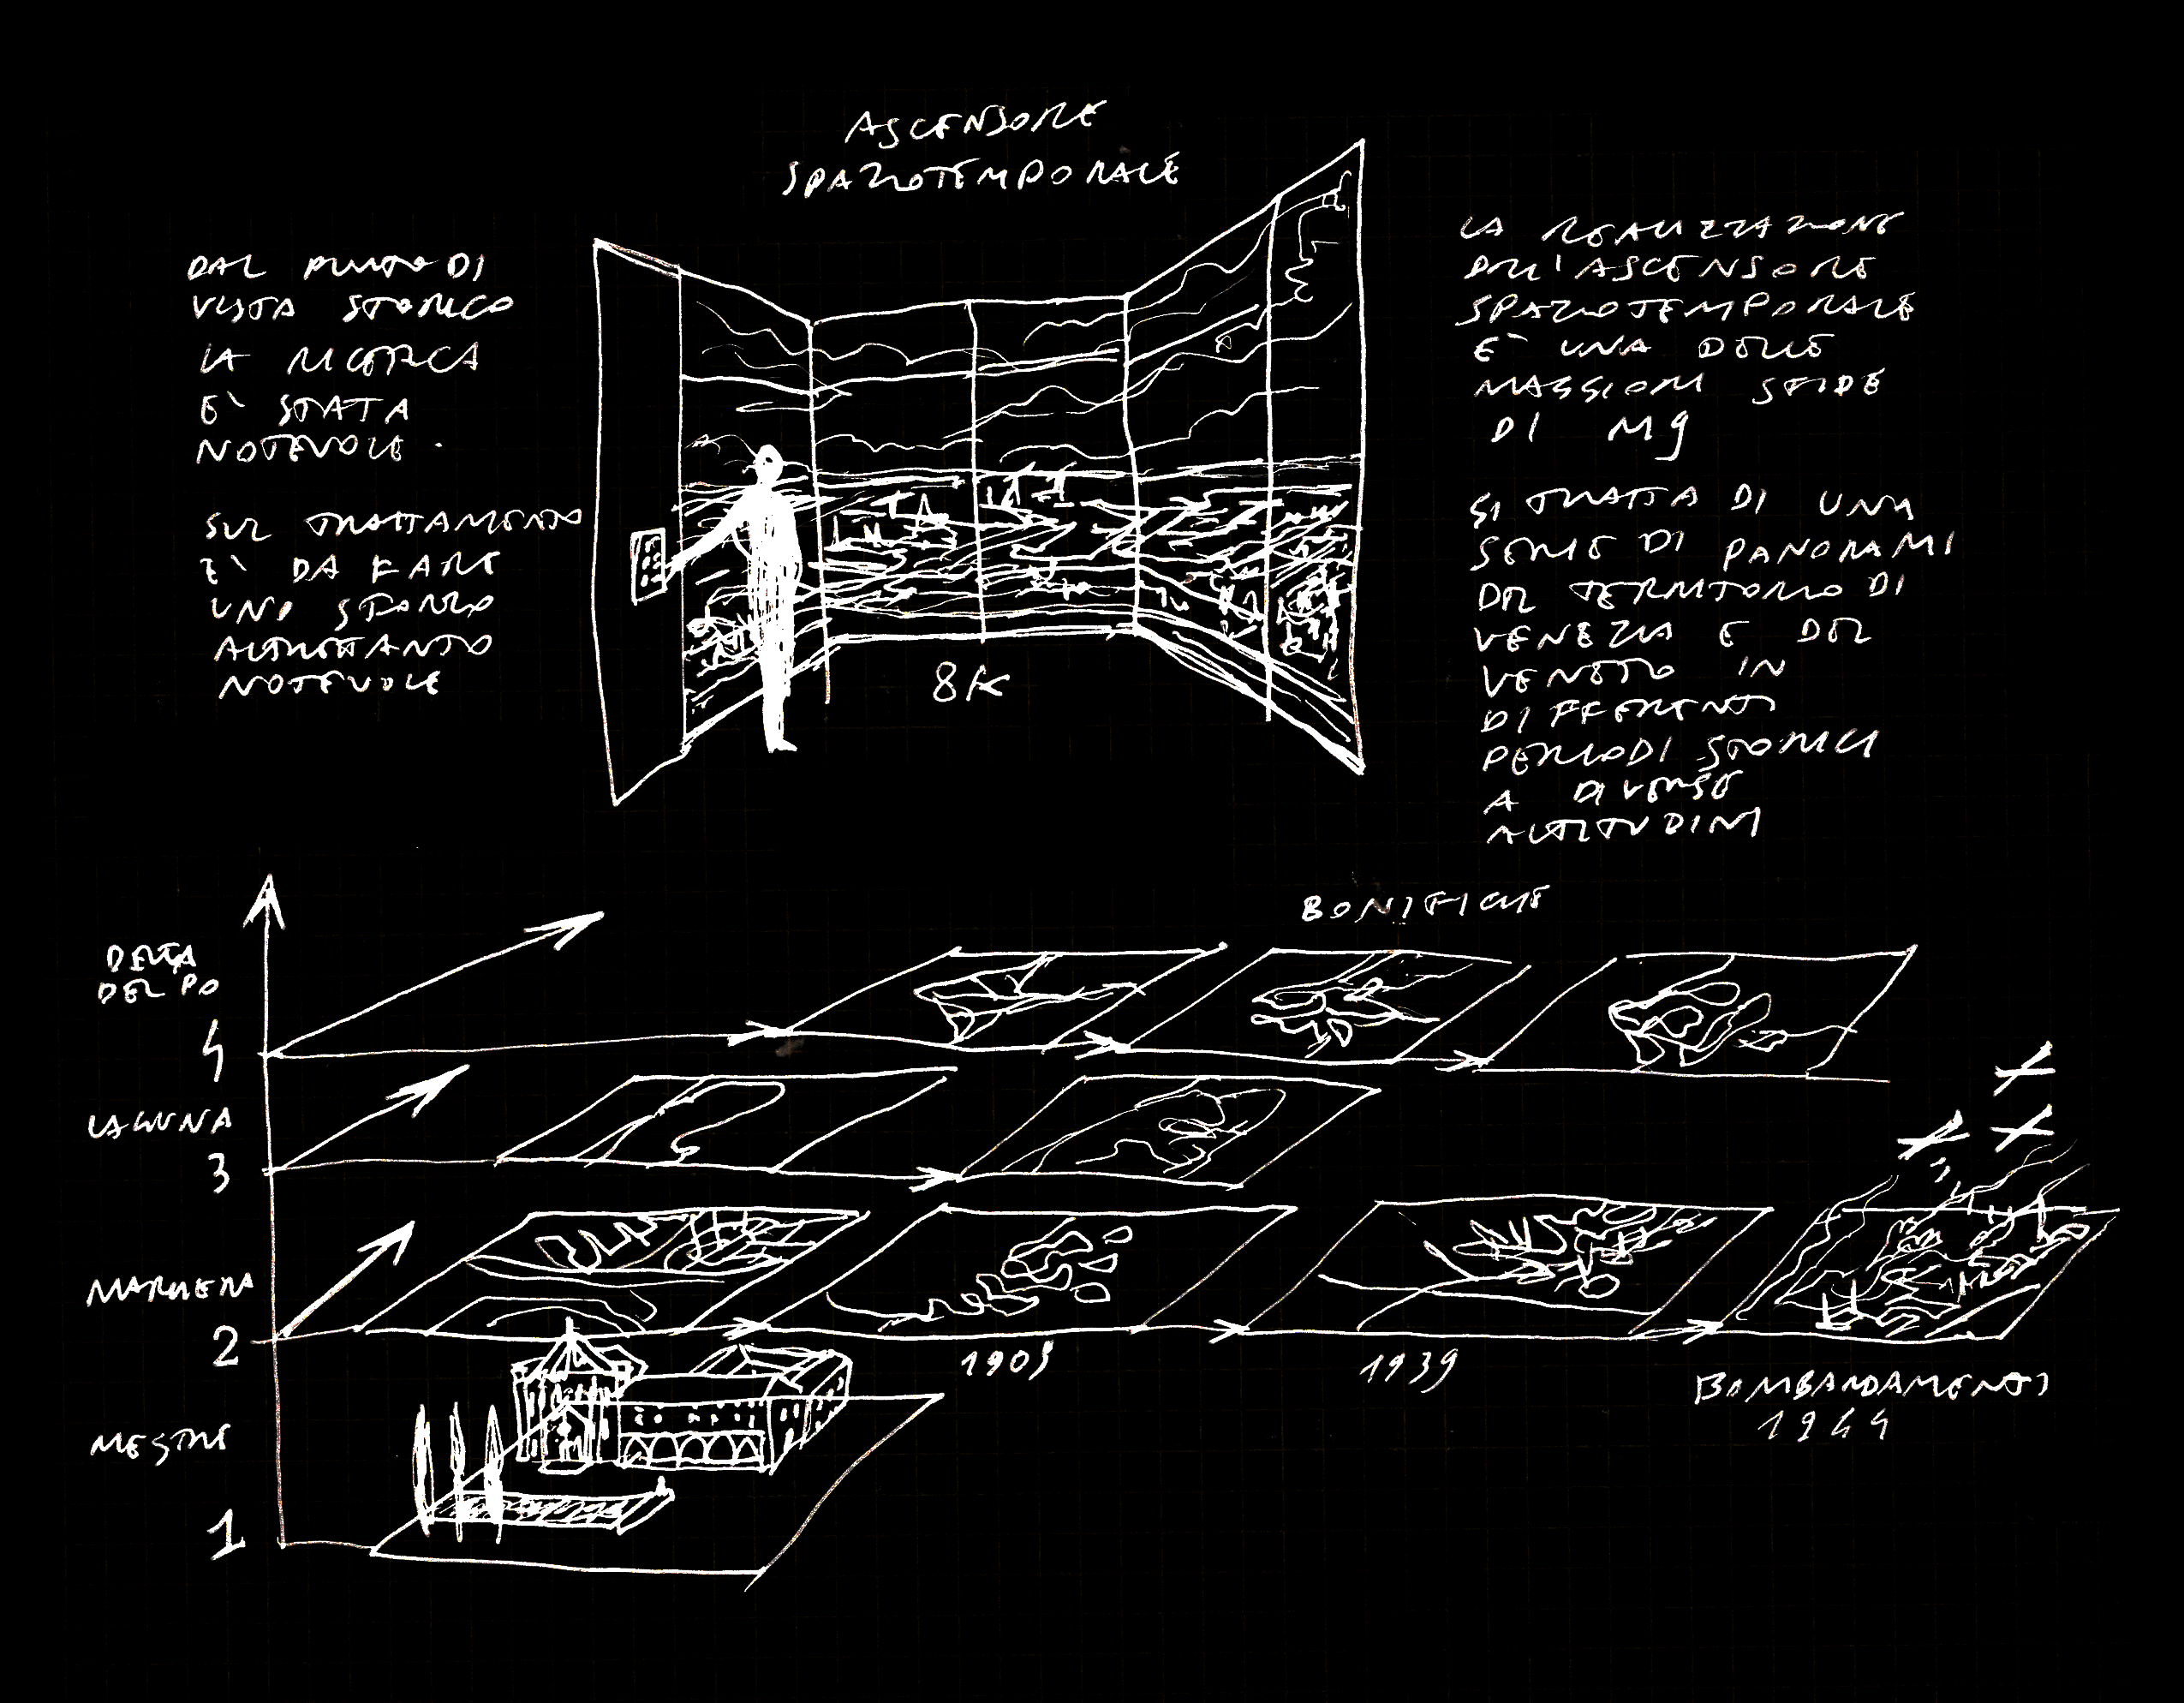 ASCENSORE
SPAZIOTEMPORALE
DAL PUNTO DI
VISTA STORICO
LA RICERCA
E' STATA
NOTEVOLE.
SUL TRATTAMENTO
E' DA FARE
UNO SFORZO
ALTRETTANTO
NOTEVOLE
8K
LA REALIZZAZIONE
DELL'ASCENSORE
SPAZIOTEMPORALE
E' UNA DELLE
MAGGIORI SFIDE
DI M9
SI TRATTA DI UNA
SERIE DI PANORAMI
DEL TERRITORIO DI
VENEZIA E DEL
VENETO IN
DIFFERENTI
PERIODI STORICI
A DIVERSE
ALTITUDINI
BONIFICHE
DELTA
DEL PO
4
LAGUNA
3
MARGHERA
2
1905
1939
BOMBARDAMENTI
1944
MESTRE
1